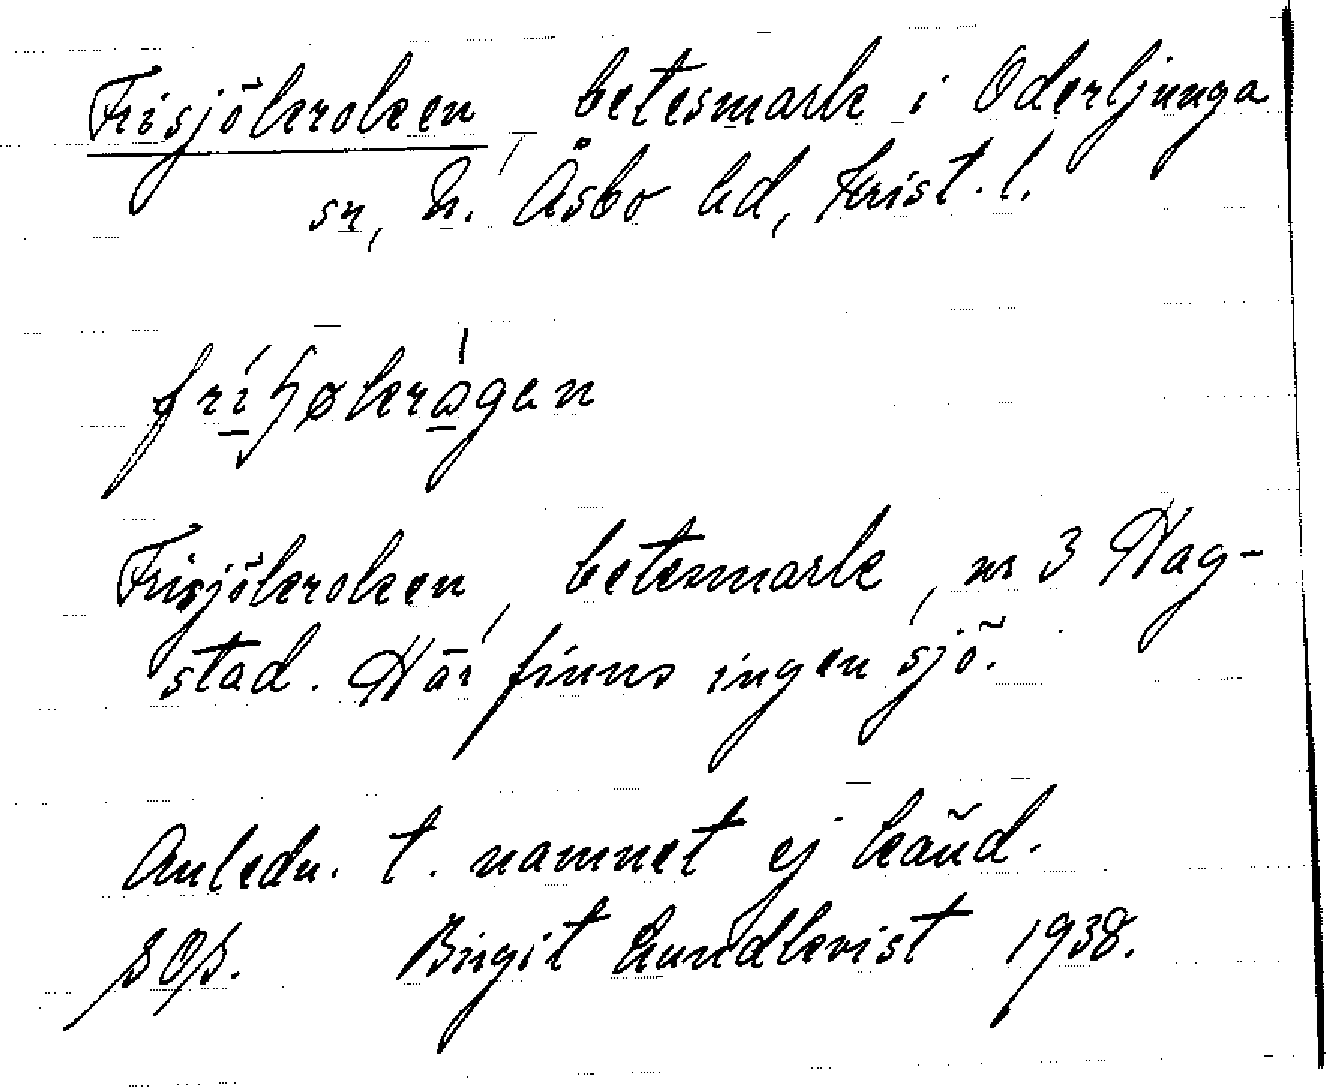 Frisjökroken, betesmark i Oderljunga
sn, N. Åsbo hd, Krist. l.
Frisjökroken, betesmark, nr 3 Hag-
stad. Här finns ingen sjö.
Anledn. t. namnet ej känd.
Birgit Lundkvist 1938.